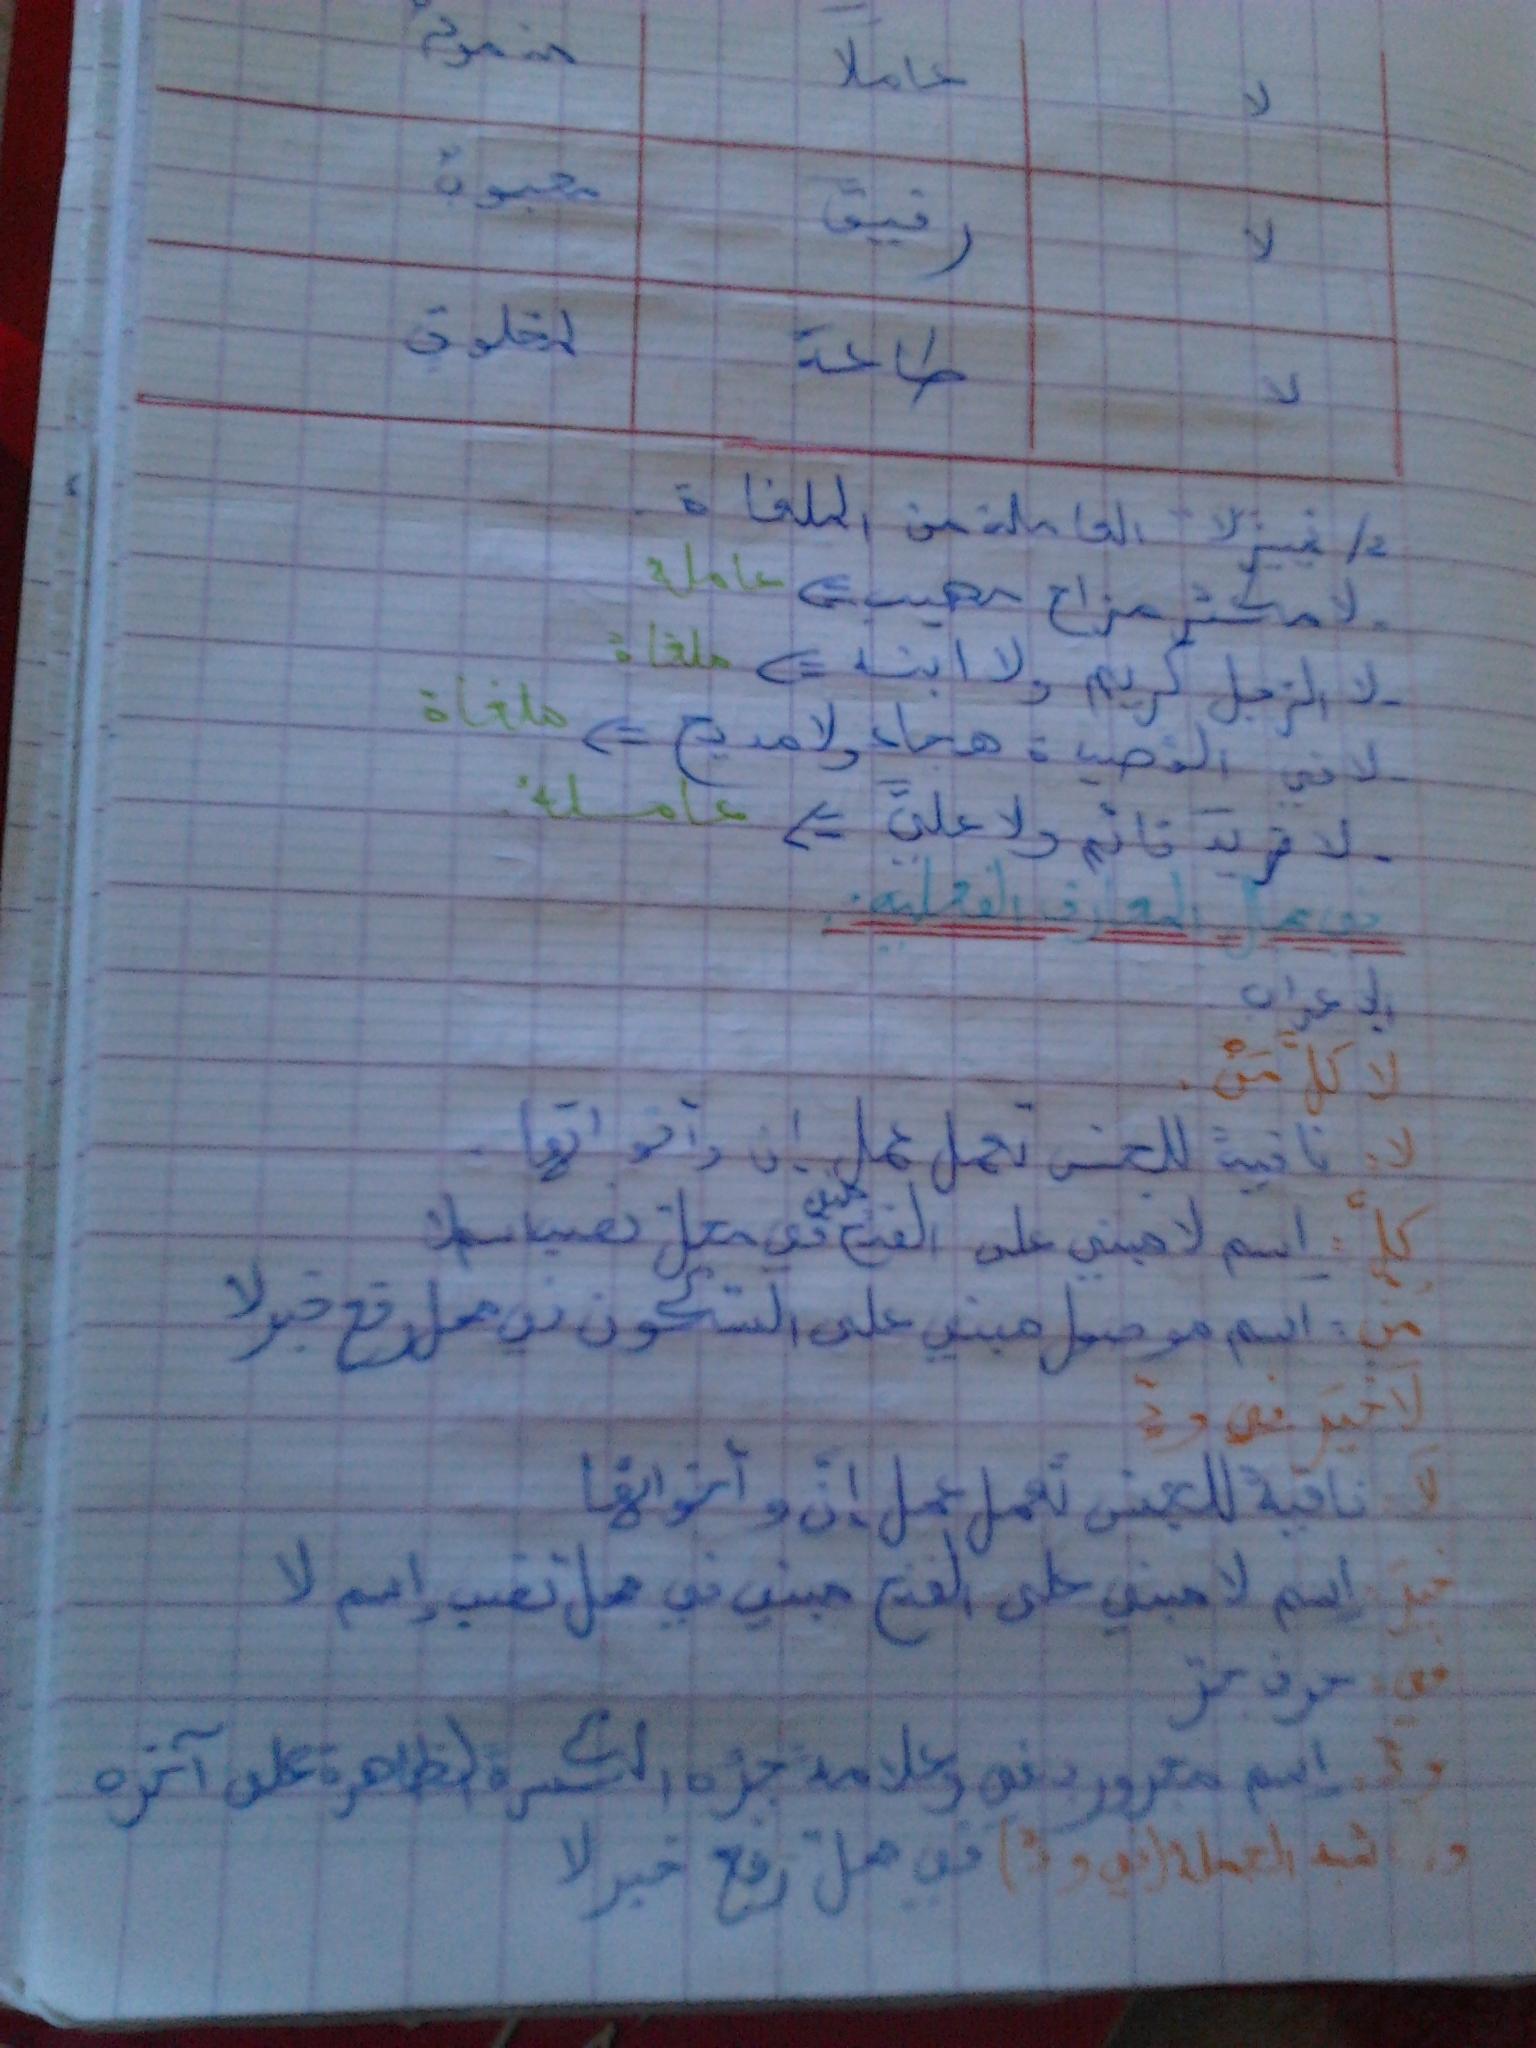 لا عاملا مذموم
لا رفيق محبوة
لا طاعة لمخلوق
2/ تمييز لا العاملة من الملغاة.
- لا مكثر مزاح مهيب ⇐ عاملة
- لا الرجل كريم ولا ابنه ⇐ ملغاة
- لا في القصيدة هجاء ولا مديح ⇐ ملغاة
- لا فريدَ قائم ولا عليَّ ⇐ عاملة.
المعارف الفعلية:
الإعراب
لا كلَّ مَنْ.
لا: نافية للجنس تعمل عمل إن وأخواتها.
كلَّ: إسم لا مبني على الفتح مبني في محل نصب اسم لا
مَن: اسم موصول مبني على السّكون في محل رفع خبر لا
لا خيرَ في ودّ
لا: نافية للجنس تعمل عمل إنّ وأخواتها
خيرَ: إسم لا مبني على الفتح مبني في محل نصب إسم لا
في: حرف جرّ
ودّ: إسم مجرور بـ في وعلامة جرّه الكسرة الظاهرة على آخره
و. شبه الجملة (في ودّ) في محل رفع خبر لا